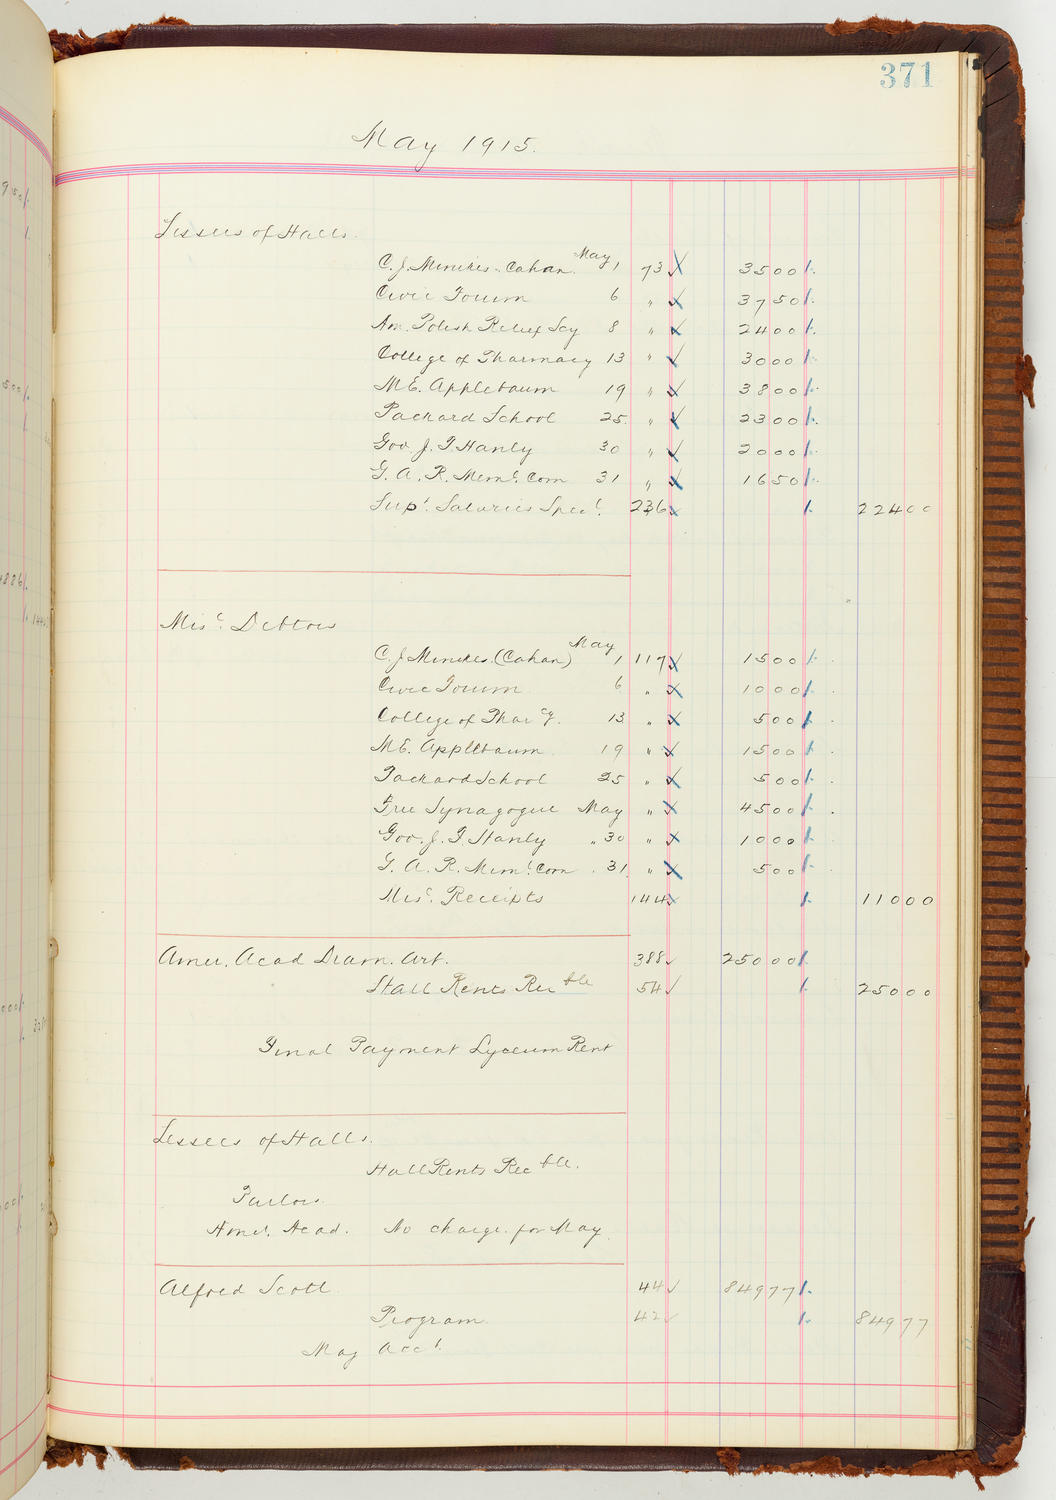 371
May 1915.
Lessees of Halls.
C. J. Minikes. Cahan. May 1 73 3500
Civic Forum 6 " 3750
Am. Polish Relief Scy 8 " 2400
College of Pharmacy 13 " 3000
M.E. Applebaum 19 " 3800
Packard School 25. " 2300
Gov J. F. Hanly 30 " 2000
G. A. R. Meml. Com 31 " 1650
Supt. Salaries Specl. 236 22400
Miscl. Debtors
C. J. Minikes. (Cahan) May 1 117 1500
Civic Forum 6 " 1000
College of Phar cy. 13 " 500
M.E. Applebaum 19 " 1500
Packard School 25 " 500
Free Synagogue May " 4500
Gov. J. F. Hanly " 30 " 1000
G. A. R. Meml. Com . 31 " 500
Miscl. Receipts 144 11000
Amer. Acad Dram. Art. 388 25000
Hall Rents Rec ble 54 25000
Final Payment Lyceum Rent
Lessees of Halls.
Hall Rents Rec ble.
Parlors.
Amer. Acad. No charge for May.
Alfred Scott 44 84977
Program 42 84977
May acct.